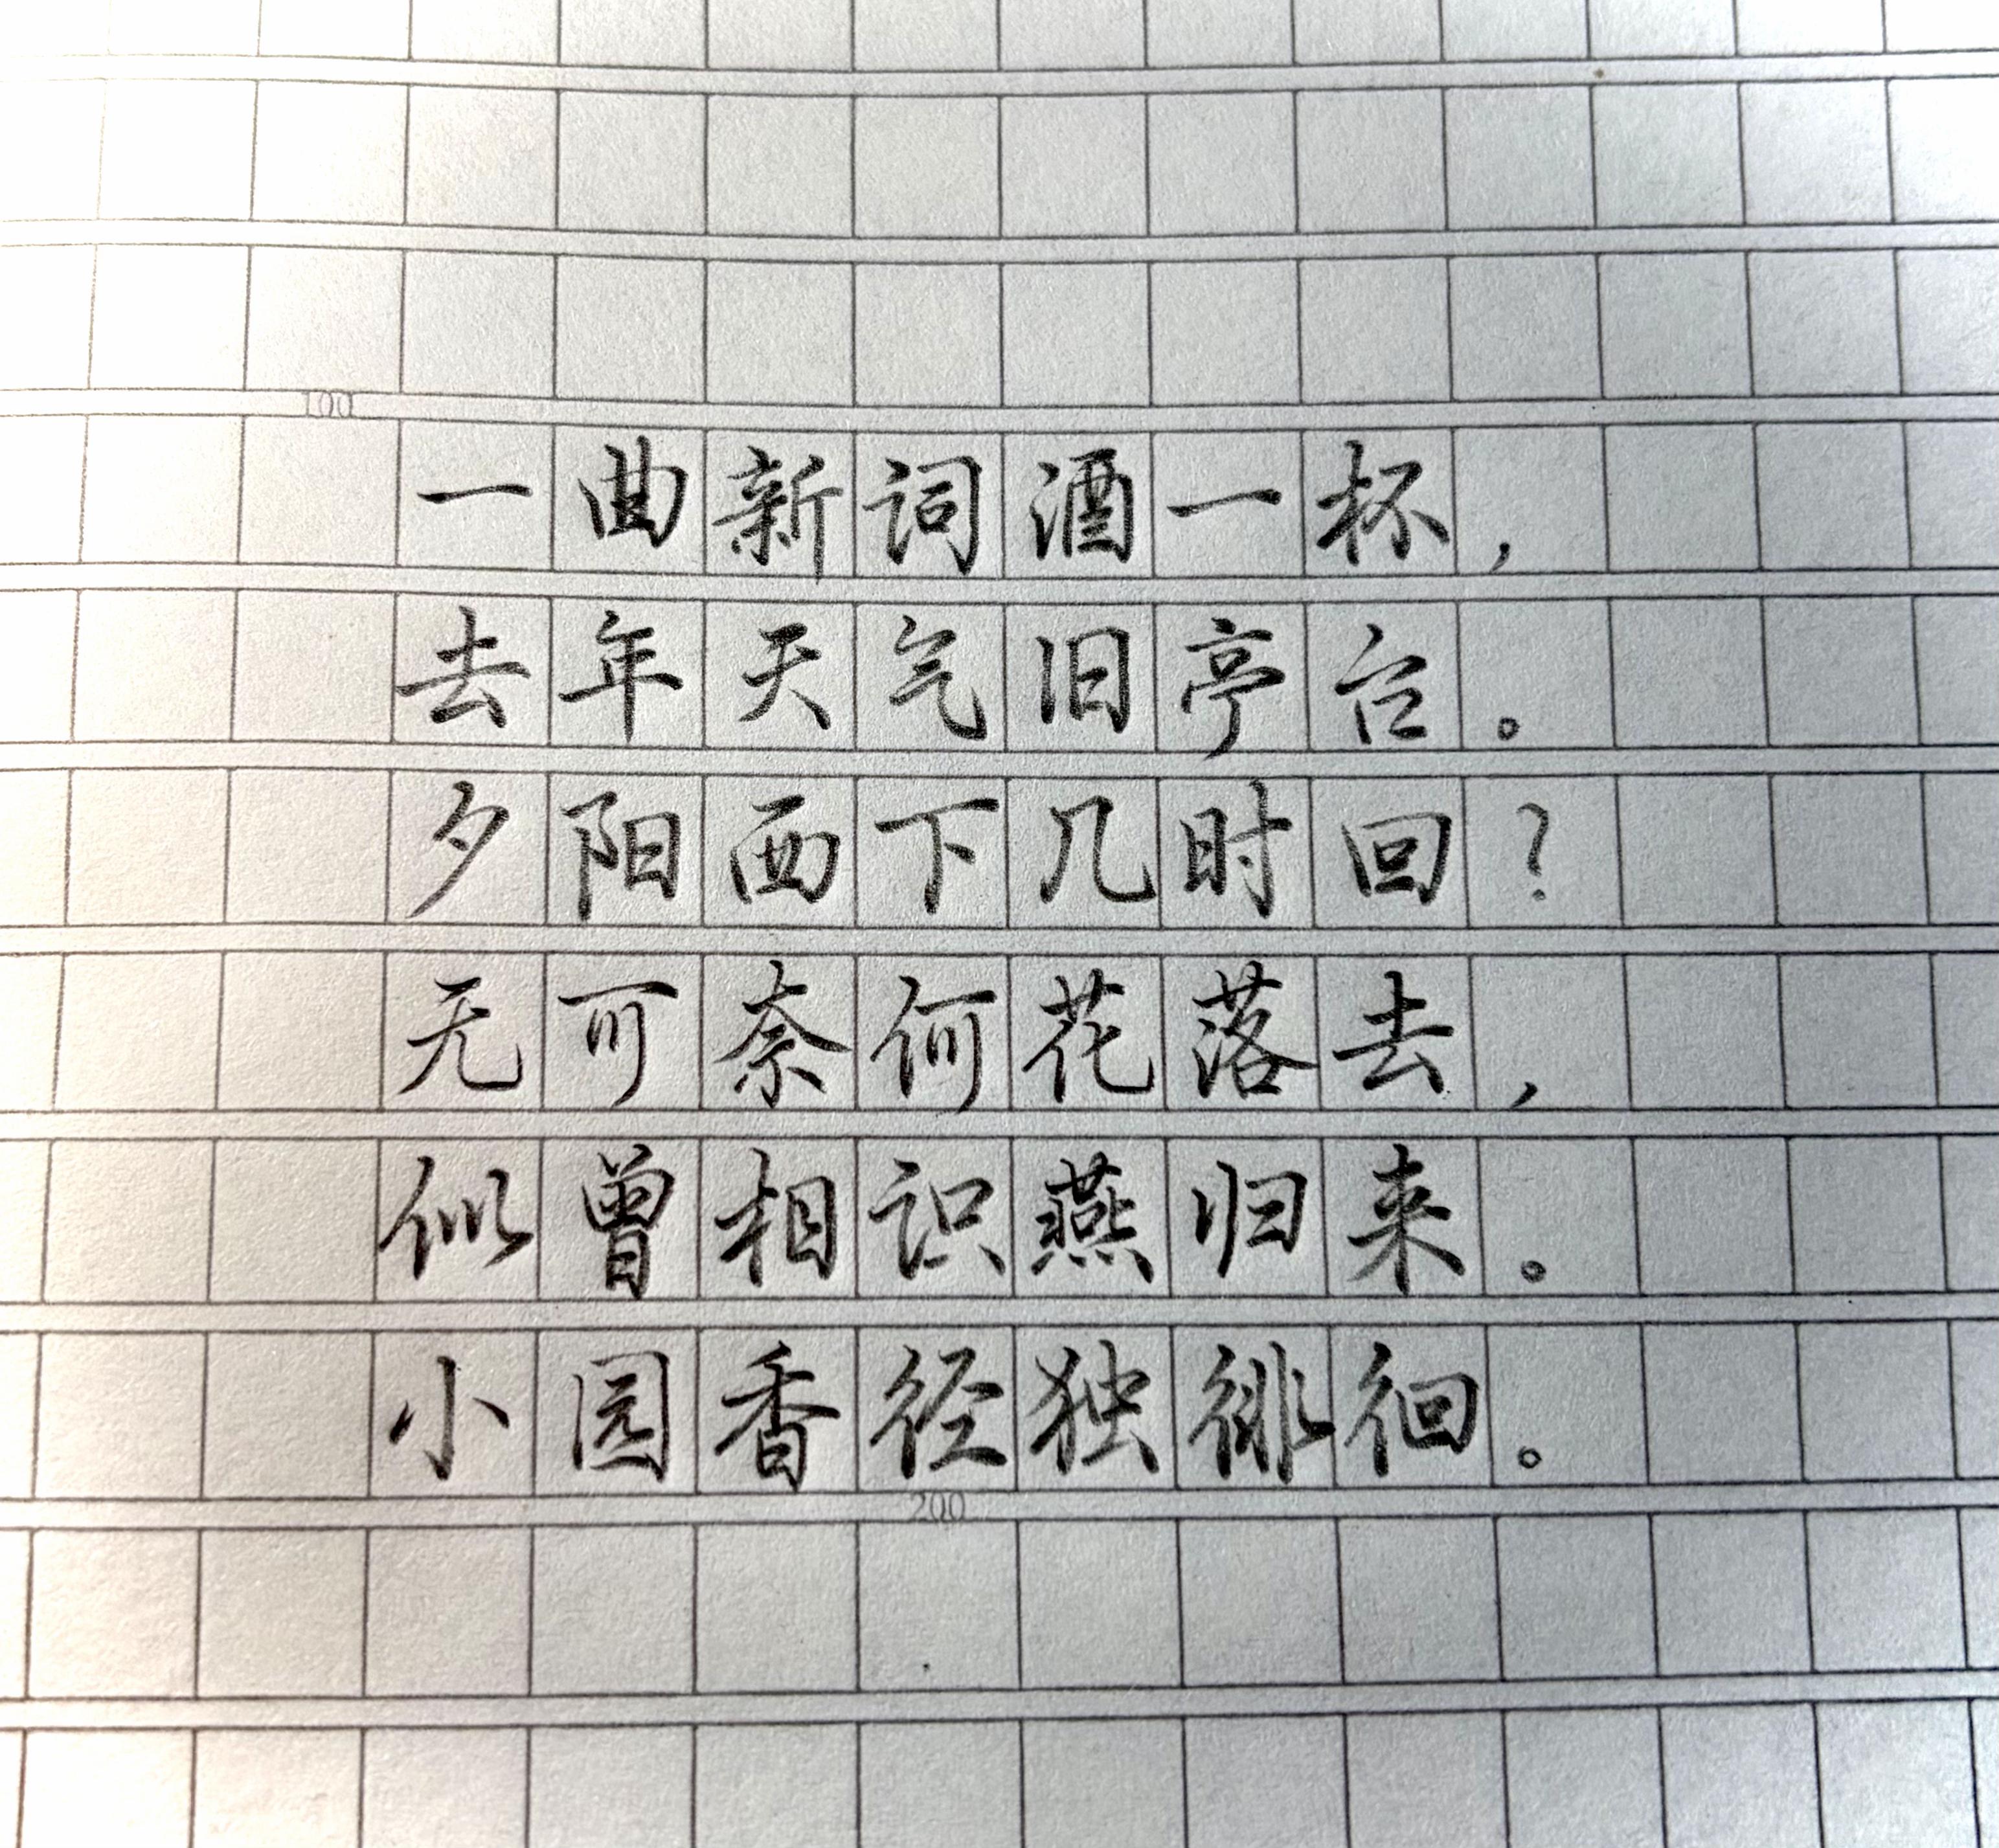 100
一曲新词酒一杯，
去年天气旧亭台。
夕阳西下几时回？
无可奈何花落去，
似曾相识燕归来。
小园香径独徘徊。
200